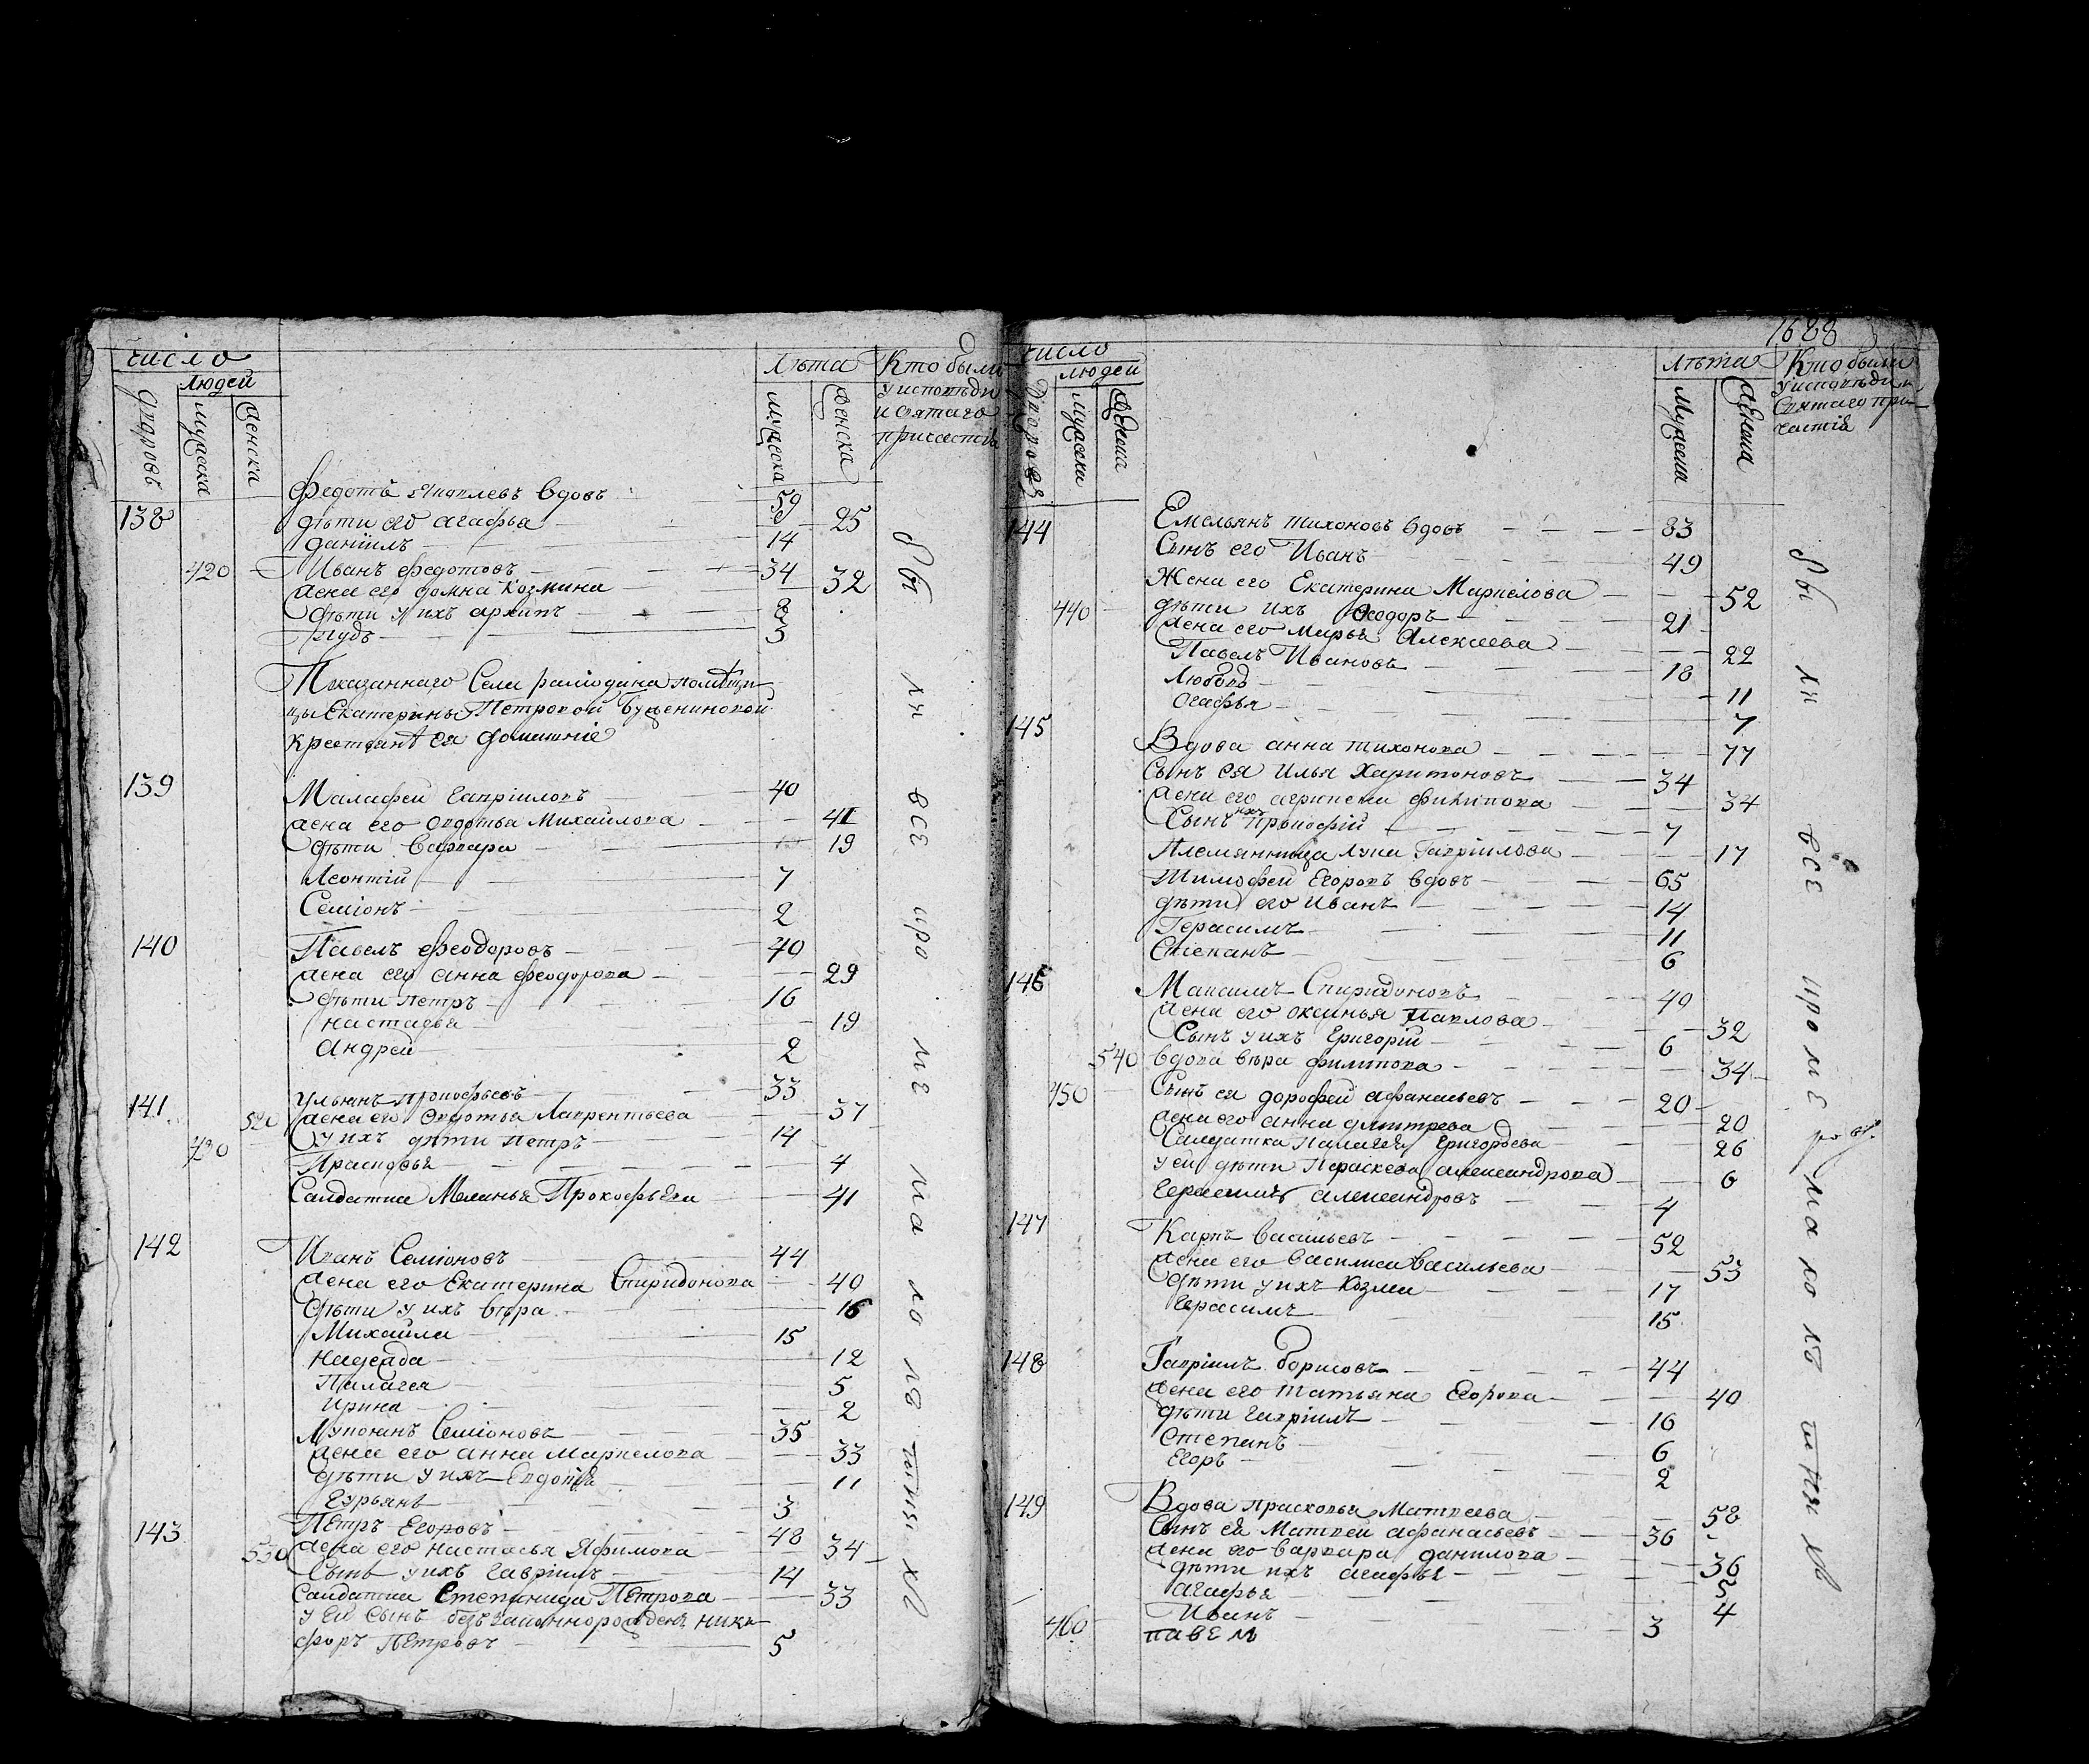 число
людей
дворовъ
мужеска
женска
Лѣта
мужеска
женска
Кто были
у исповѣди
и святаго
причастія
Федотъ Яковлевъ вдовъ 59
138 дѣти его агафья 25
даніилъ 14
420 Иванъ федотовъ 34
жена его домна Козмина 32
дѣти у ихъ архипъ 8
3
Показаннаго Села помѣщи
цы Екатерины Петровой
крестьянѣ ея домашніе
139 Малафей гавріиловъ 40
жена его овдотья Михайлова 41
дѣти варвара 19
Леонтій 7
Семіонъ 2
140 Павелъ феодоровъ 40
жена его анна феодорова 29
дѣти петръ 16
настасья 19
Андрей 2
141 ульянъ прокофьевъ 33
520 жена его овдотья Лаврентьева 37
430 у ихъ дѣти петръ 14
Прасковья 4
Салдатка Меланья Прокофьева 41
142 Иванъ Семіоновъ 44
жена его Екатерина Спиридонова 40
дѣти у ихъ вѣра 16
Михайла 15
надежда 12
Палагея 5
ирина 2
Лукьянъ Семіоновъ 35
жена его анна Маркелова 33
дѣти у ихъ Евдокія 11
Гурьянъ 3
143 Петръ Егоровъ 48
530 жена его настасья Яфимова 34
Сынъ у ихъ гавріилъ 14
Салдатка Степанида Петрова 33
у ея сынъ ники
форъ Петровъ 5
вы ли все кро ме ма ло ле тны хъ
1688
число
людей
дворовъ
мужеска
женска
лѣта
мужеска
женска
Кто были
у исповѣди и
Святаго при
частія
144 Емельянъ тихоновъ вдовъ 83
Сынъ его Иванъ 49
Жена его Екатерина Маркелова 52
440 дѣти ихъ Феодоръ 21
жена его марья Алексеева 22
Павелъ Ивановъ 18
Любовь 11
огафья 7
145 Вдова анна тихонова 77
Сынъ ея илья Харитоновъ 34
жена его агрипена филипова 34
Сынъ ихъ прокофій 7
Племянница Гавріилова 17
Тимофей Егоровъ вдовъ 65
дѣти его иванъ 14
Герасимъ 11
Степанъ 6
146 Максимъ Спиридоновъ 40
жена его оксинья Павлова 32
Сынъ у ихъ Григорій 6
540 вдова вѣра филипова 34
450 Сынъ ея дорофей афанасьевъ 20
жена его анна дмитрева 20
Салдатка палагея григорьева 26
у ей дѣти Параскева александрова 6
герасимъ александровъ 4
147 Карпъ васильевъ 52
жена его василиса васильева 53
дѣти у ихъ козма 17
герасимъ 15
148 Гавріилъ борисовъ 44
жена его татьяна Егорова 40
дѣти гавріилъ 16
Степанъ 6
Егоръ 2
149 Вдова прасковья Матвеева 58
Сынъ ея Матвей афанасьевъ 36
жена его варвара данилова 36
дѣти ихъ агафья 5
агафья 4
Иванъ 3
460 павелъ
вы ли все кроме мало лѣ тны хъ